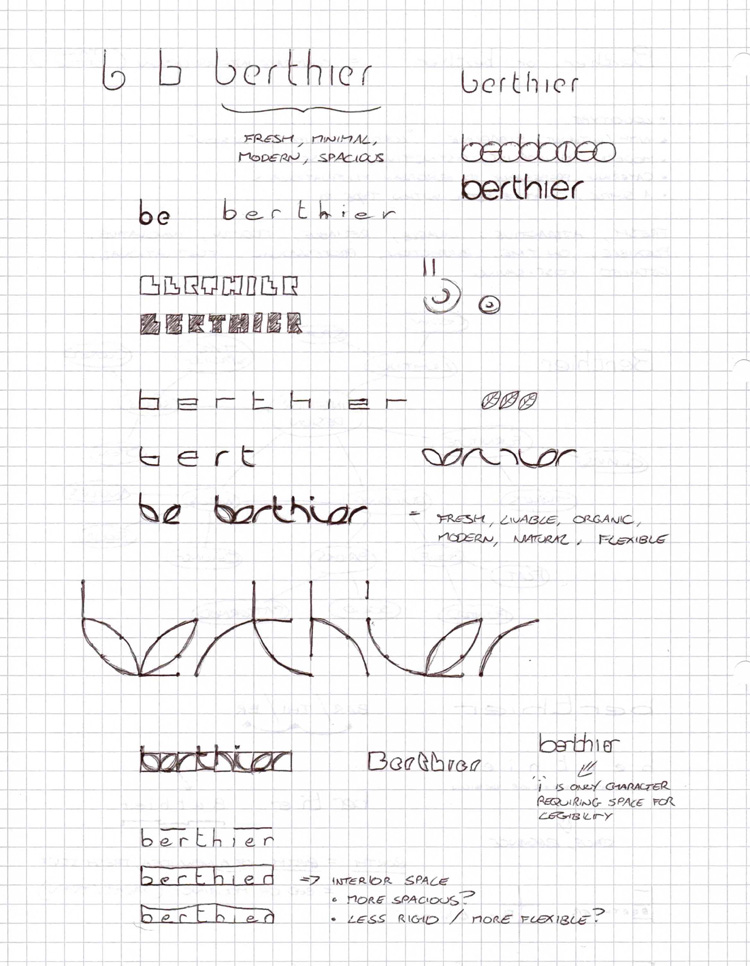 b b berthier
berthier
FRESH, MINIMAL,
MODERN, SPACIOUS
berthier
be berthier
BERTHIER
BERTHIER
berthier
bert
be berthier
= FRESH, LIVABLE, ORGANIC,
MODERN, NATURAL, FLEXIBLE
berthier
berthier
Berthier
berthier
"i" IS ONLY CHARACTER
REQUIRING SPACE FOR
LEGIBILITY
berthier
berthier
=> INTERIOR SPACE
• MORE SPACIOUS?
berthier
• LESS RIGID / MORE FLEXIBLE?